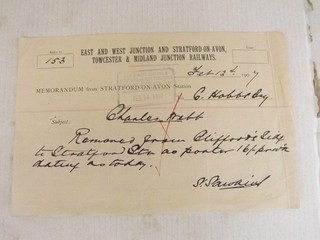 EAST AND WEST JUNCTION AND STRATFORD-ON-AVON,
TOWCESTER & MIDLAND JUNCTION RAILWAYS.
153
Feb 12th 1907
MEMORANDUM from STRATFORD-ON-AVON Station
C. Hobbs Esq
Subject
Charles Webb
Removed from Cliffords Sdg
to Stratford Stn as porter 16/- per wk
dating as today.